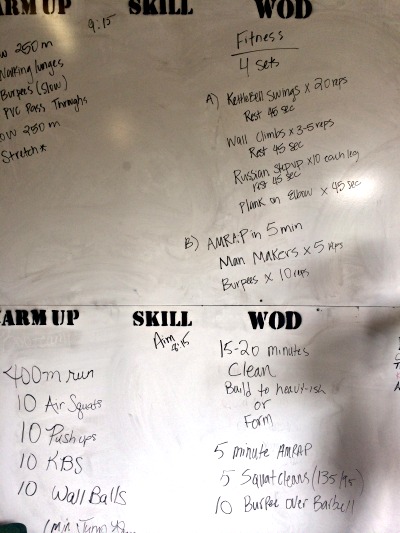 ARM UP SKILL WOD
9:15
Fitness
4 sets
ow 250 m
Walking lunges
Burpees (slow)
PVC Pass Throughs
ow 250 m
Stretch*
A) KettleBell Swings x 20 reps
Rest 45 sec
Wall Climbs x 3-5 reps
Rest 45 sec
Russian Stepup x10 each leg
rest 45 sec
Plank on Elbow x 45 sec
B) AMRAP in 5 min
Man Makers x 5 reps
Burpees x 10 reps
ARM UP SKILL WOD
Aim
9:15
400m run
10 Air Squats
10 Pushups
10 KBS
10 Wall Balls
1 min Jump
15-20 minutes
Clean
Build to heavy-ish
or
Form
5 minute AMRAP
5 Squat Cleans (135/95)
10 Burpee over Barbell